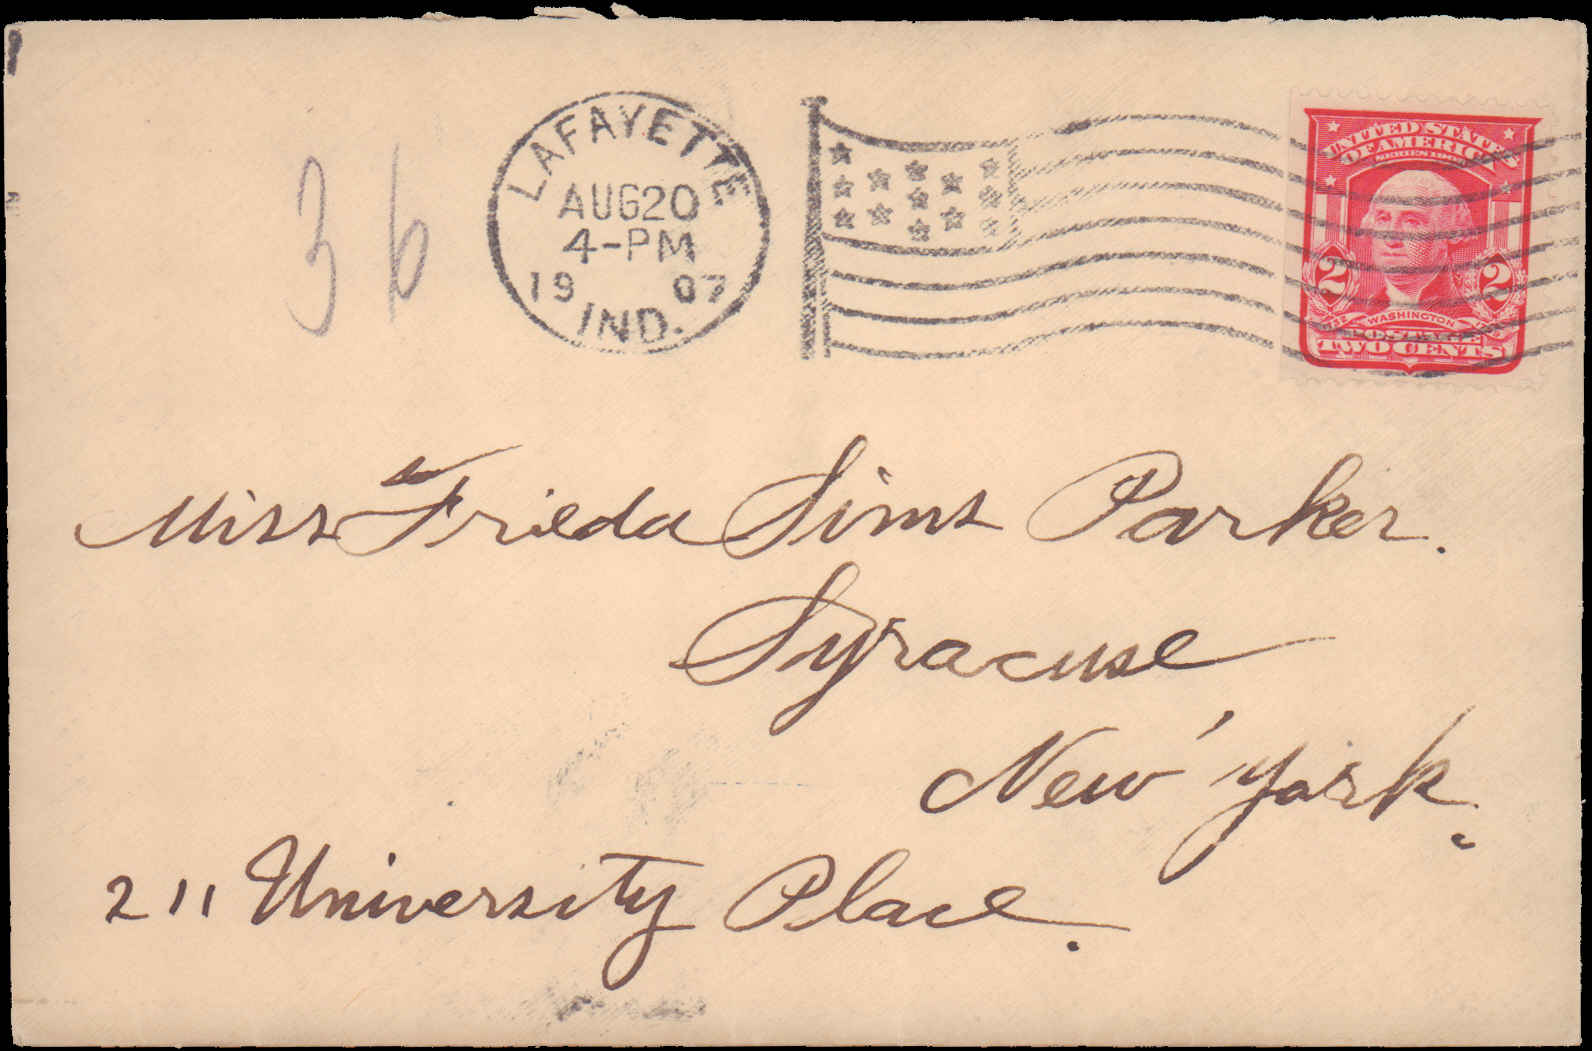 36
LAFAYETTE
AUG 20
4-PM
1907
IND.
UNITED STATES
OF AMERICA
SERIES 1902
2 2
WASHINGTON
POSTAGE
TWO CENTS
Miss Frieda Sims Parker.
Syracuse
New York.
211 University Place.